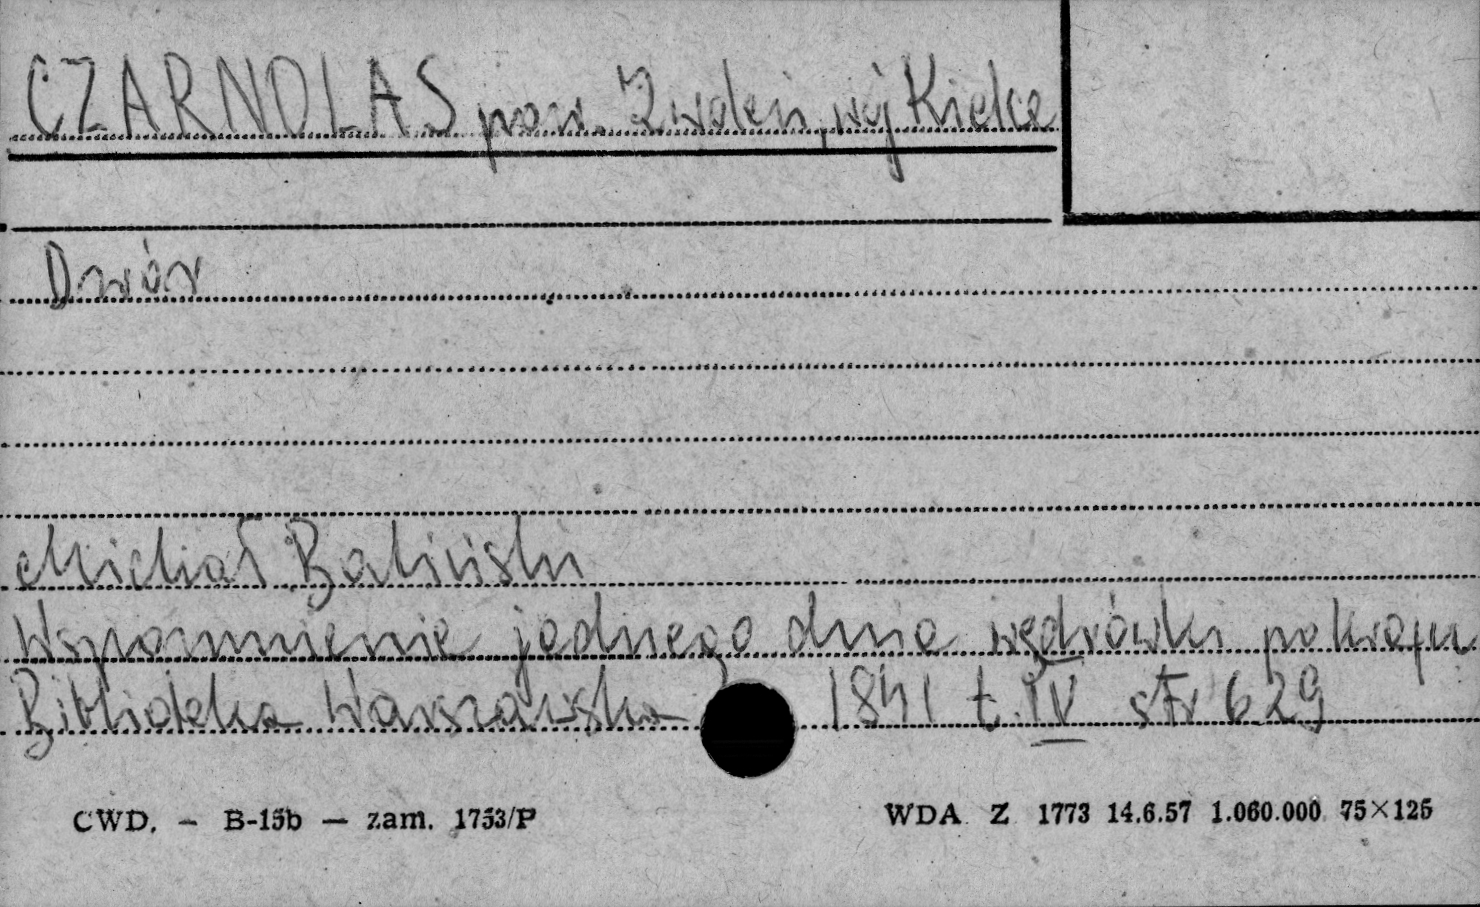 CZARNOLAS pow. Zwoleń, woj Kielce
Dwór
Michał Baliński
Wspomnienie jednego dnia wędrówki po kraju
Biblioteka Warszawska 1841 t. IV str 629
CWD. – B-15b – zam. 1753/P WDA Z 1773 14.6.57 1.060.000 75×125